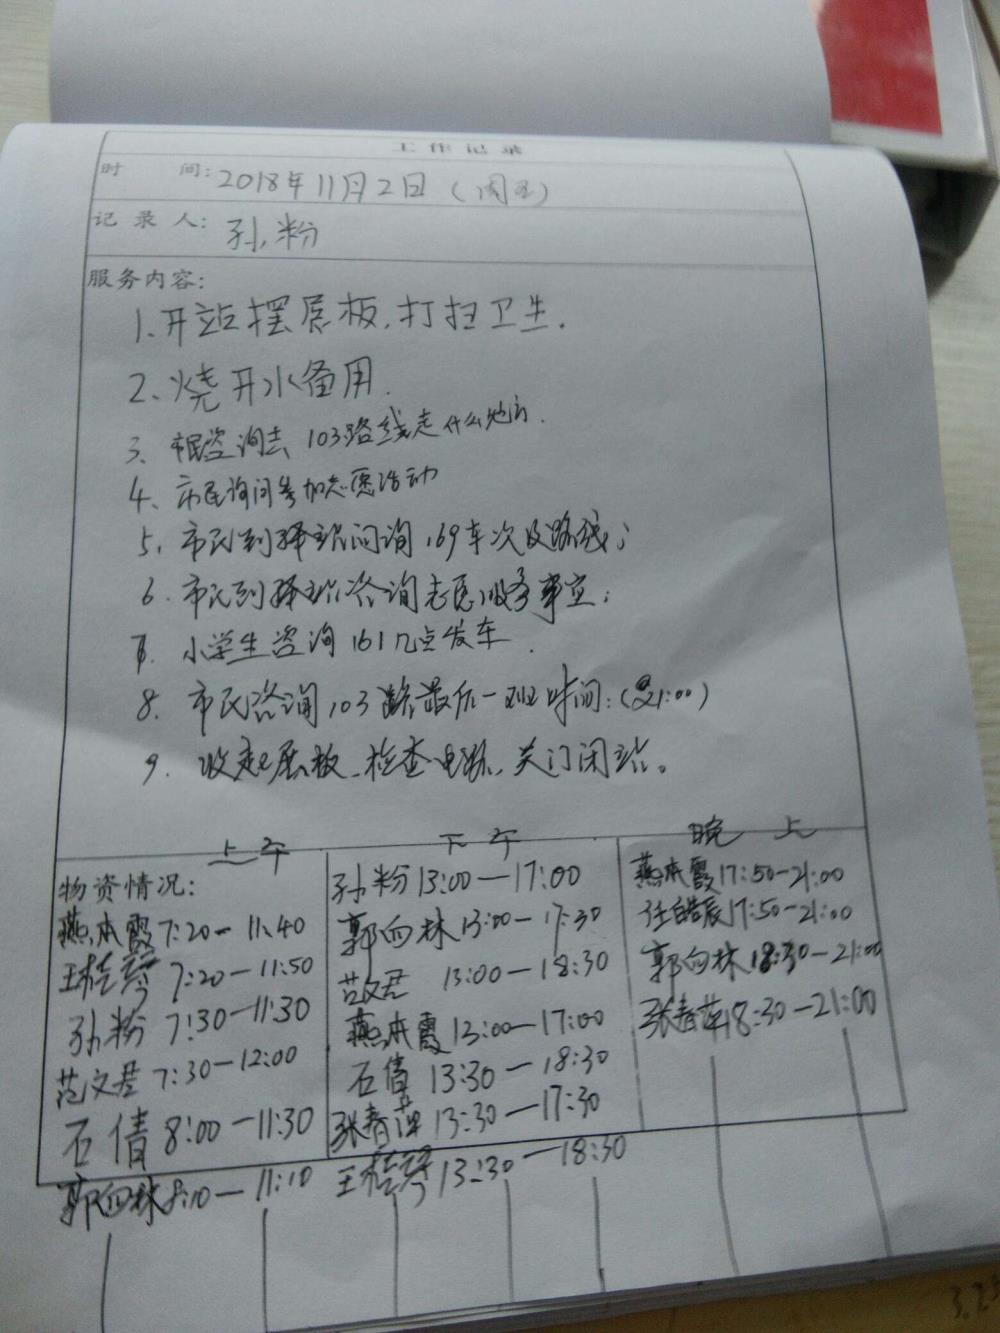 工作记录
时 间: 2018年11月2日 (周五)
记录人: 孙粉
服务内容:
1、开站摆展板,打扫卫生.
2、烧开水备用.
3、市民咨询去103路线走什么地方.
4、市民询问参加志愿活动
5、市民到驿站问询169车次及路线;
6、市民到驿站咨询志愿服务事宜;
7、小学生咨询161几点发车.
8、市民咨询103路最后一班时间:(21:00)
9、收起展板、检查电源,关门闭站。
上午 下午 晚上
物资情况:
燕本霞 7:20-11:40
王桂琴 7:20-11:50
孙粉 7:30-11:30
范文君 7:30-12:00
石倩 8:00-11:30
郭向林 8:10-11:10
孙粉 13:00-17:00
郭向林 13:00-17:30
范文君 13:00-18:30
燕本霞 13:00-17:00
石倩 13:30-18:30
张春萍 13:30-17:30
王桂琴 13:30-18:30
燕本霞 17:50-21:00
任皓辰 17:50-21:00
郭向林 18:30-21:00
张春萍 18:30-21:00